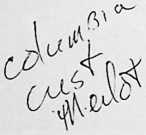 columbia
crest
Merlot